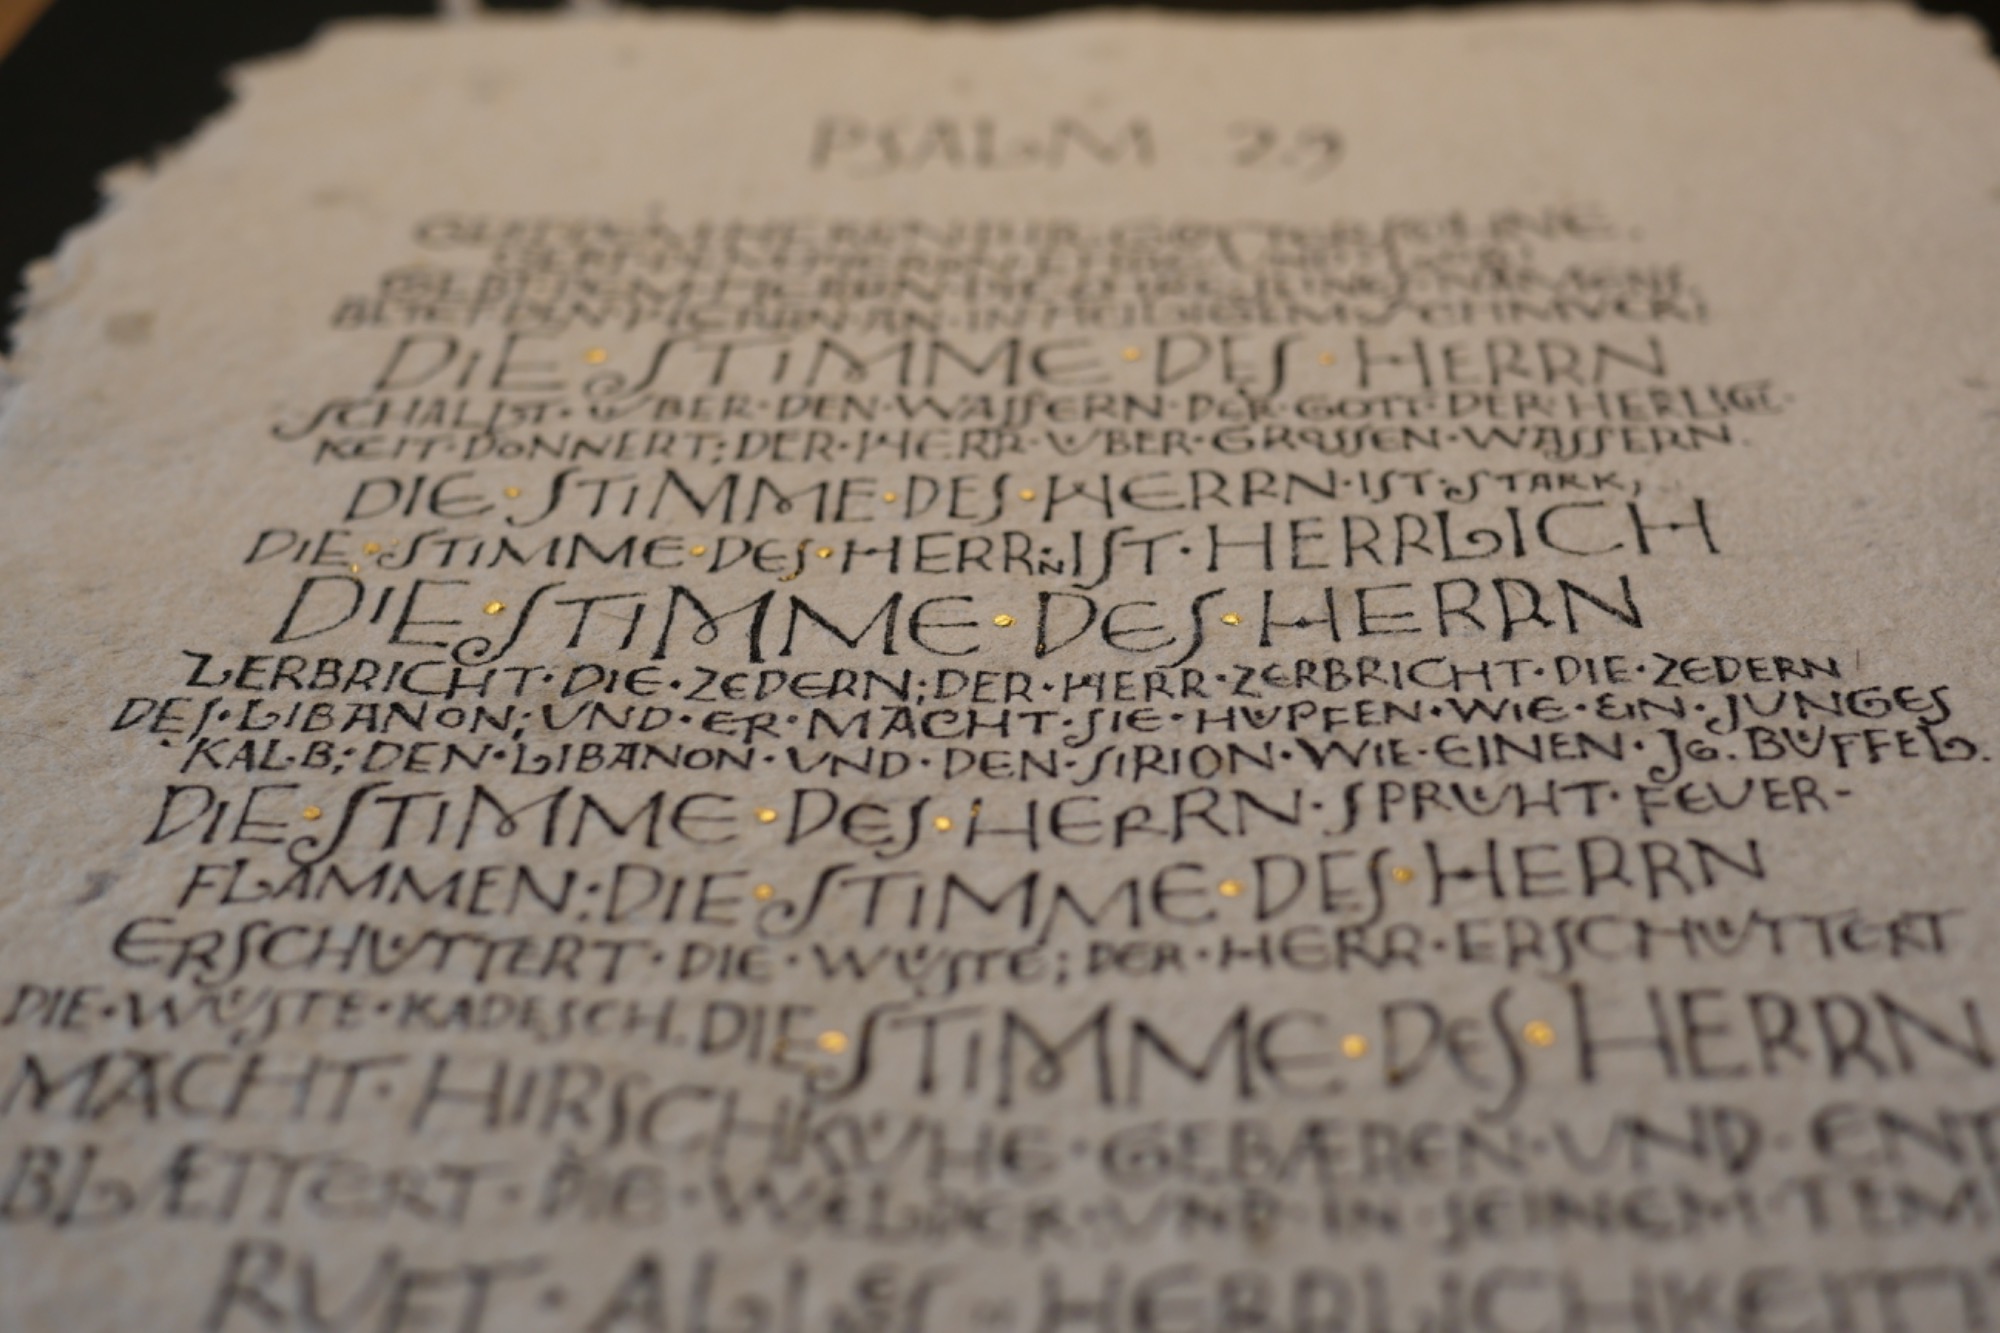 PSALM 29
DIE·STIMME·DES·HERRN
SCHALIST·ÜBER·DEN·WASSERN·DER·GOTT·DER·HERLIG-
KEIT·DONNERT;DER·HERR·ÜBER·GROSSEN·WASSERN.
DIE·STIMME·DES·HERRN·IST·STARK,
DIE·STIMME·DES·HERRN·IST·HERRLICH
DIE·STIMME·DES·HERRN
ZERBRICHT·DIE·ZEDERN;DER·HERR·ZERBRICHT·DIE·ZEDERN
DES·LIBANON;UND·ER·MACHT·SIE·HÜPFEN·WIE·EIN·JUNGES
KALB;DEN·LIBANON·UND·DEN·SIRION·WIE·EINEN·JG.BÜFFEL.
DIE·STIMME·DES·HERRN·SPRÜHT·FEUER-
FLAMMEN:DIE·STIMME·DES·HERRN
ERSCHÜTTERT·DIE·WÜSTE;DER·HERR·ERSCHÜTTERT
DIE·WÜSTE·KADESCH.DIE·STIMME·DES·HERRN
MACHT·HIRSCHKÜHE·GEBÆREN·UND·ENT
BLÆTTERT·DIE·WÆLDER·UND·IN·SEINEM·TEM
RUFT·ALLES·HERRLICHKEIT